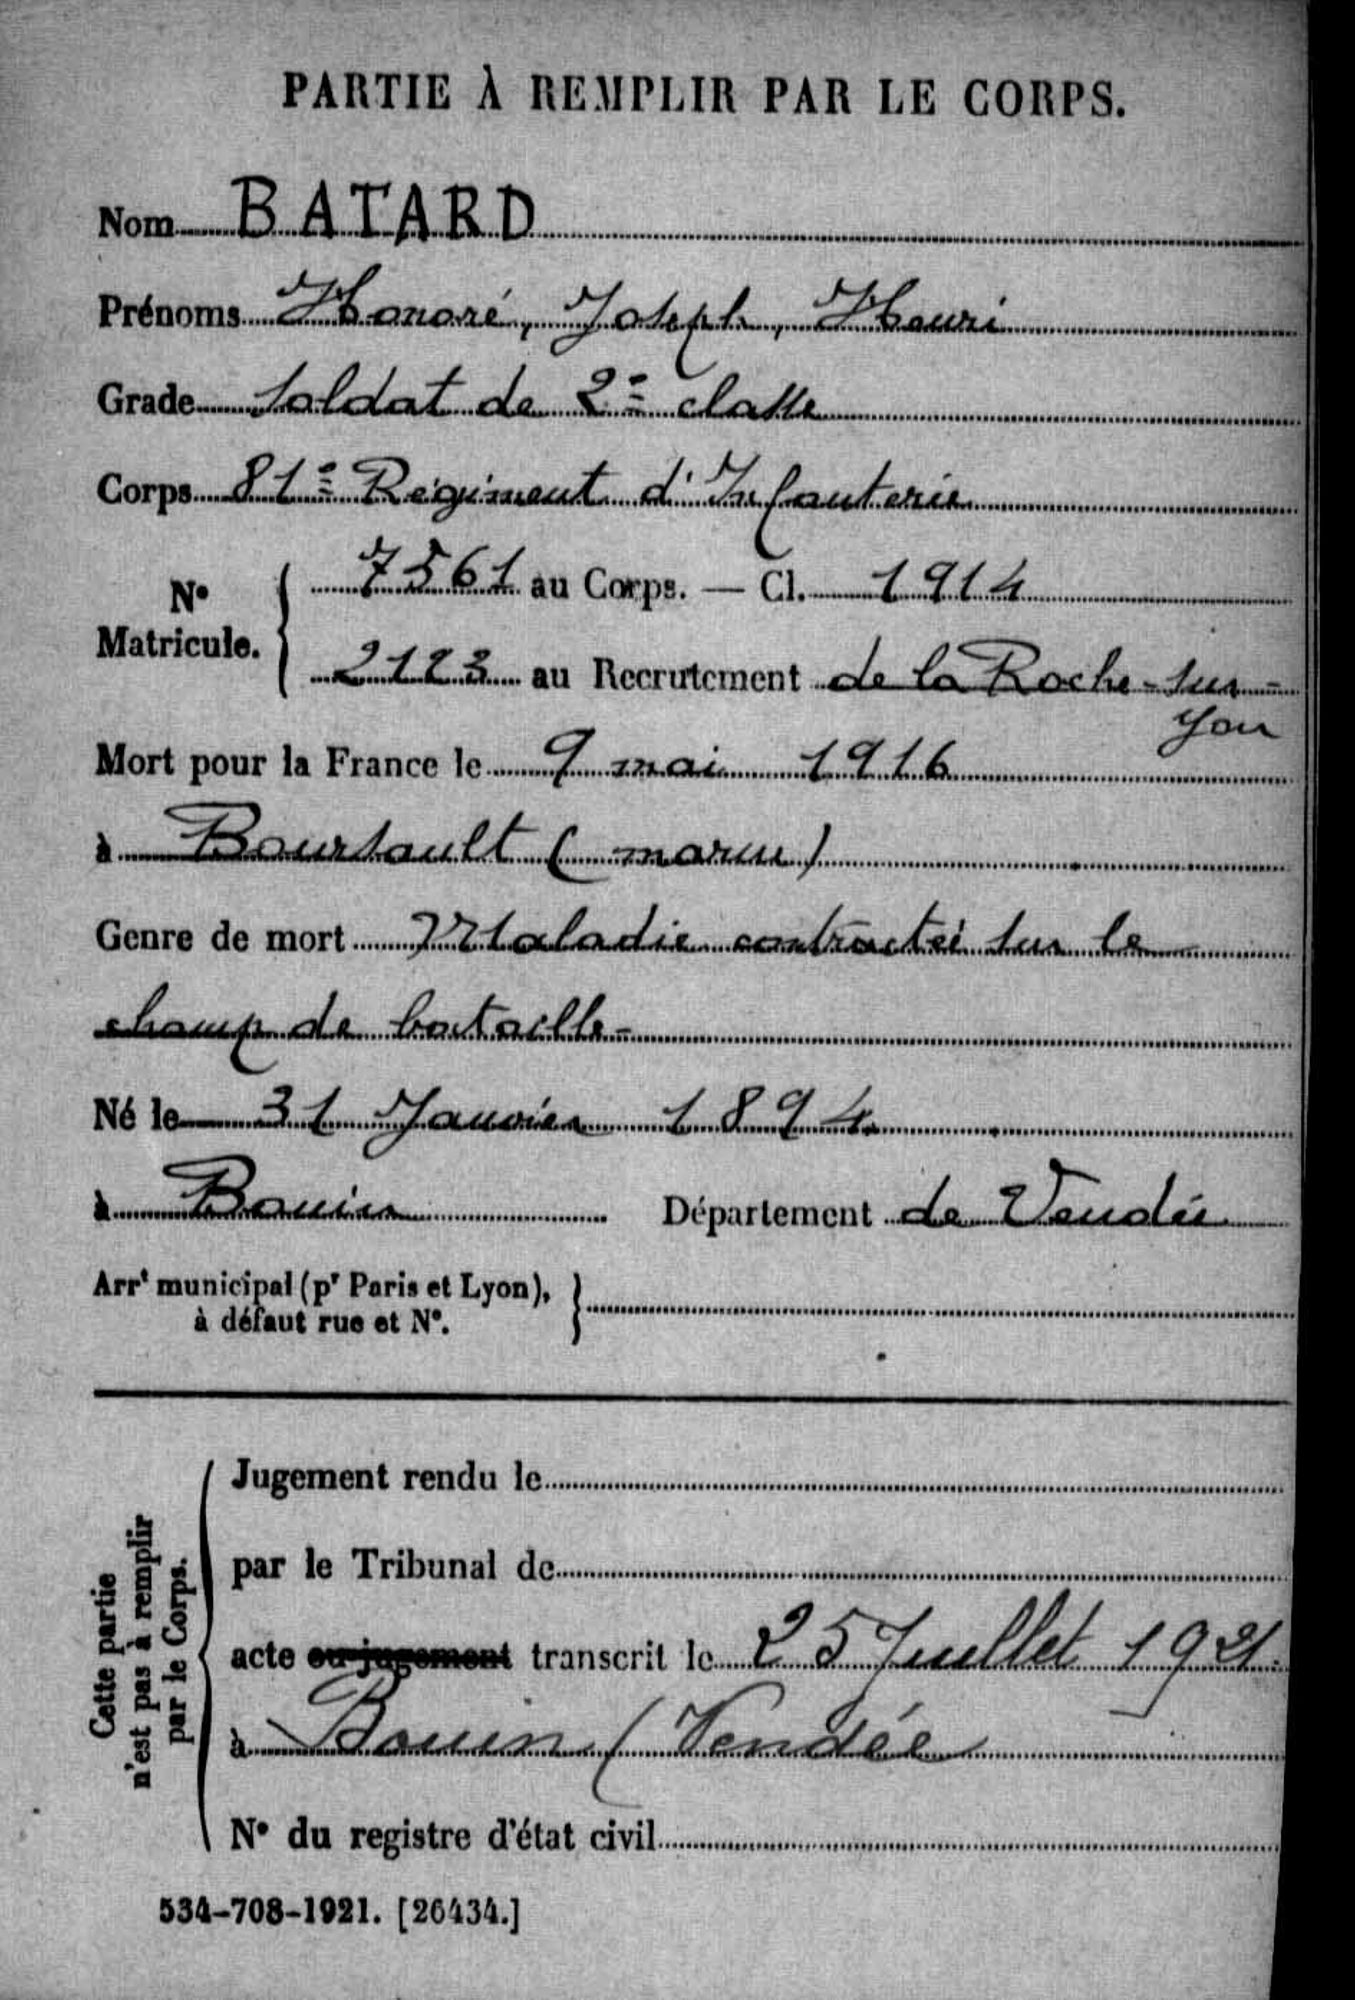 PARTIE À REMPLIR PAR LE CORPS.
Nom BATARD
Prénoms Honoré, Joseph, Henri
Grade Soldat de 2e classe
Corps 81e Régiment d'Infanterie
No Matricule. { 7561 au Corps. — Cl. 1914
2123 au Recrutement de la Roche-sur-
Yon
Mort pour la France le 9 mai 1916
à Boursault (marne)
Genre de mort Maladie contractée sur le
champ de bataille-
Né le 31 Janvier 1894
à Bouin Département de Vendée
Arrt municipal (pr Paris et Lyon),
à défaut rue et No. }
Cette partie
n'est pas à remplir
par le Corps.
Jugement rendu le
par le Tribunal de
acte ou jugement transcrit le 25 Juillet 1921.
à Bouin (Vendée
No du registre d'état civil
534-708-1921. [26434.]